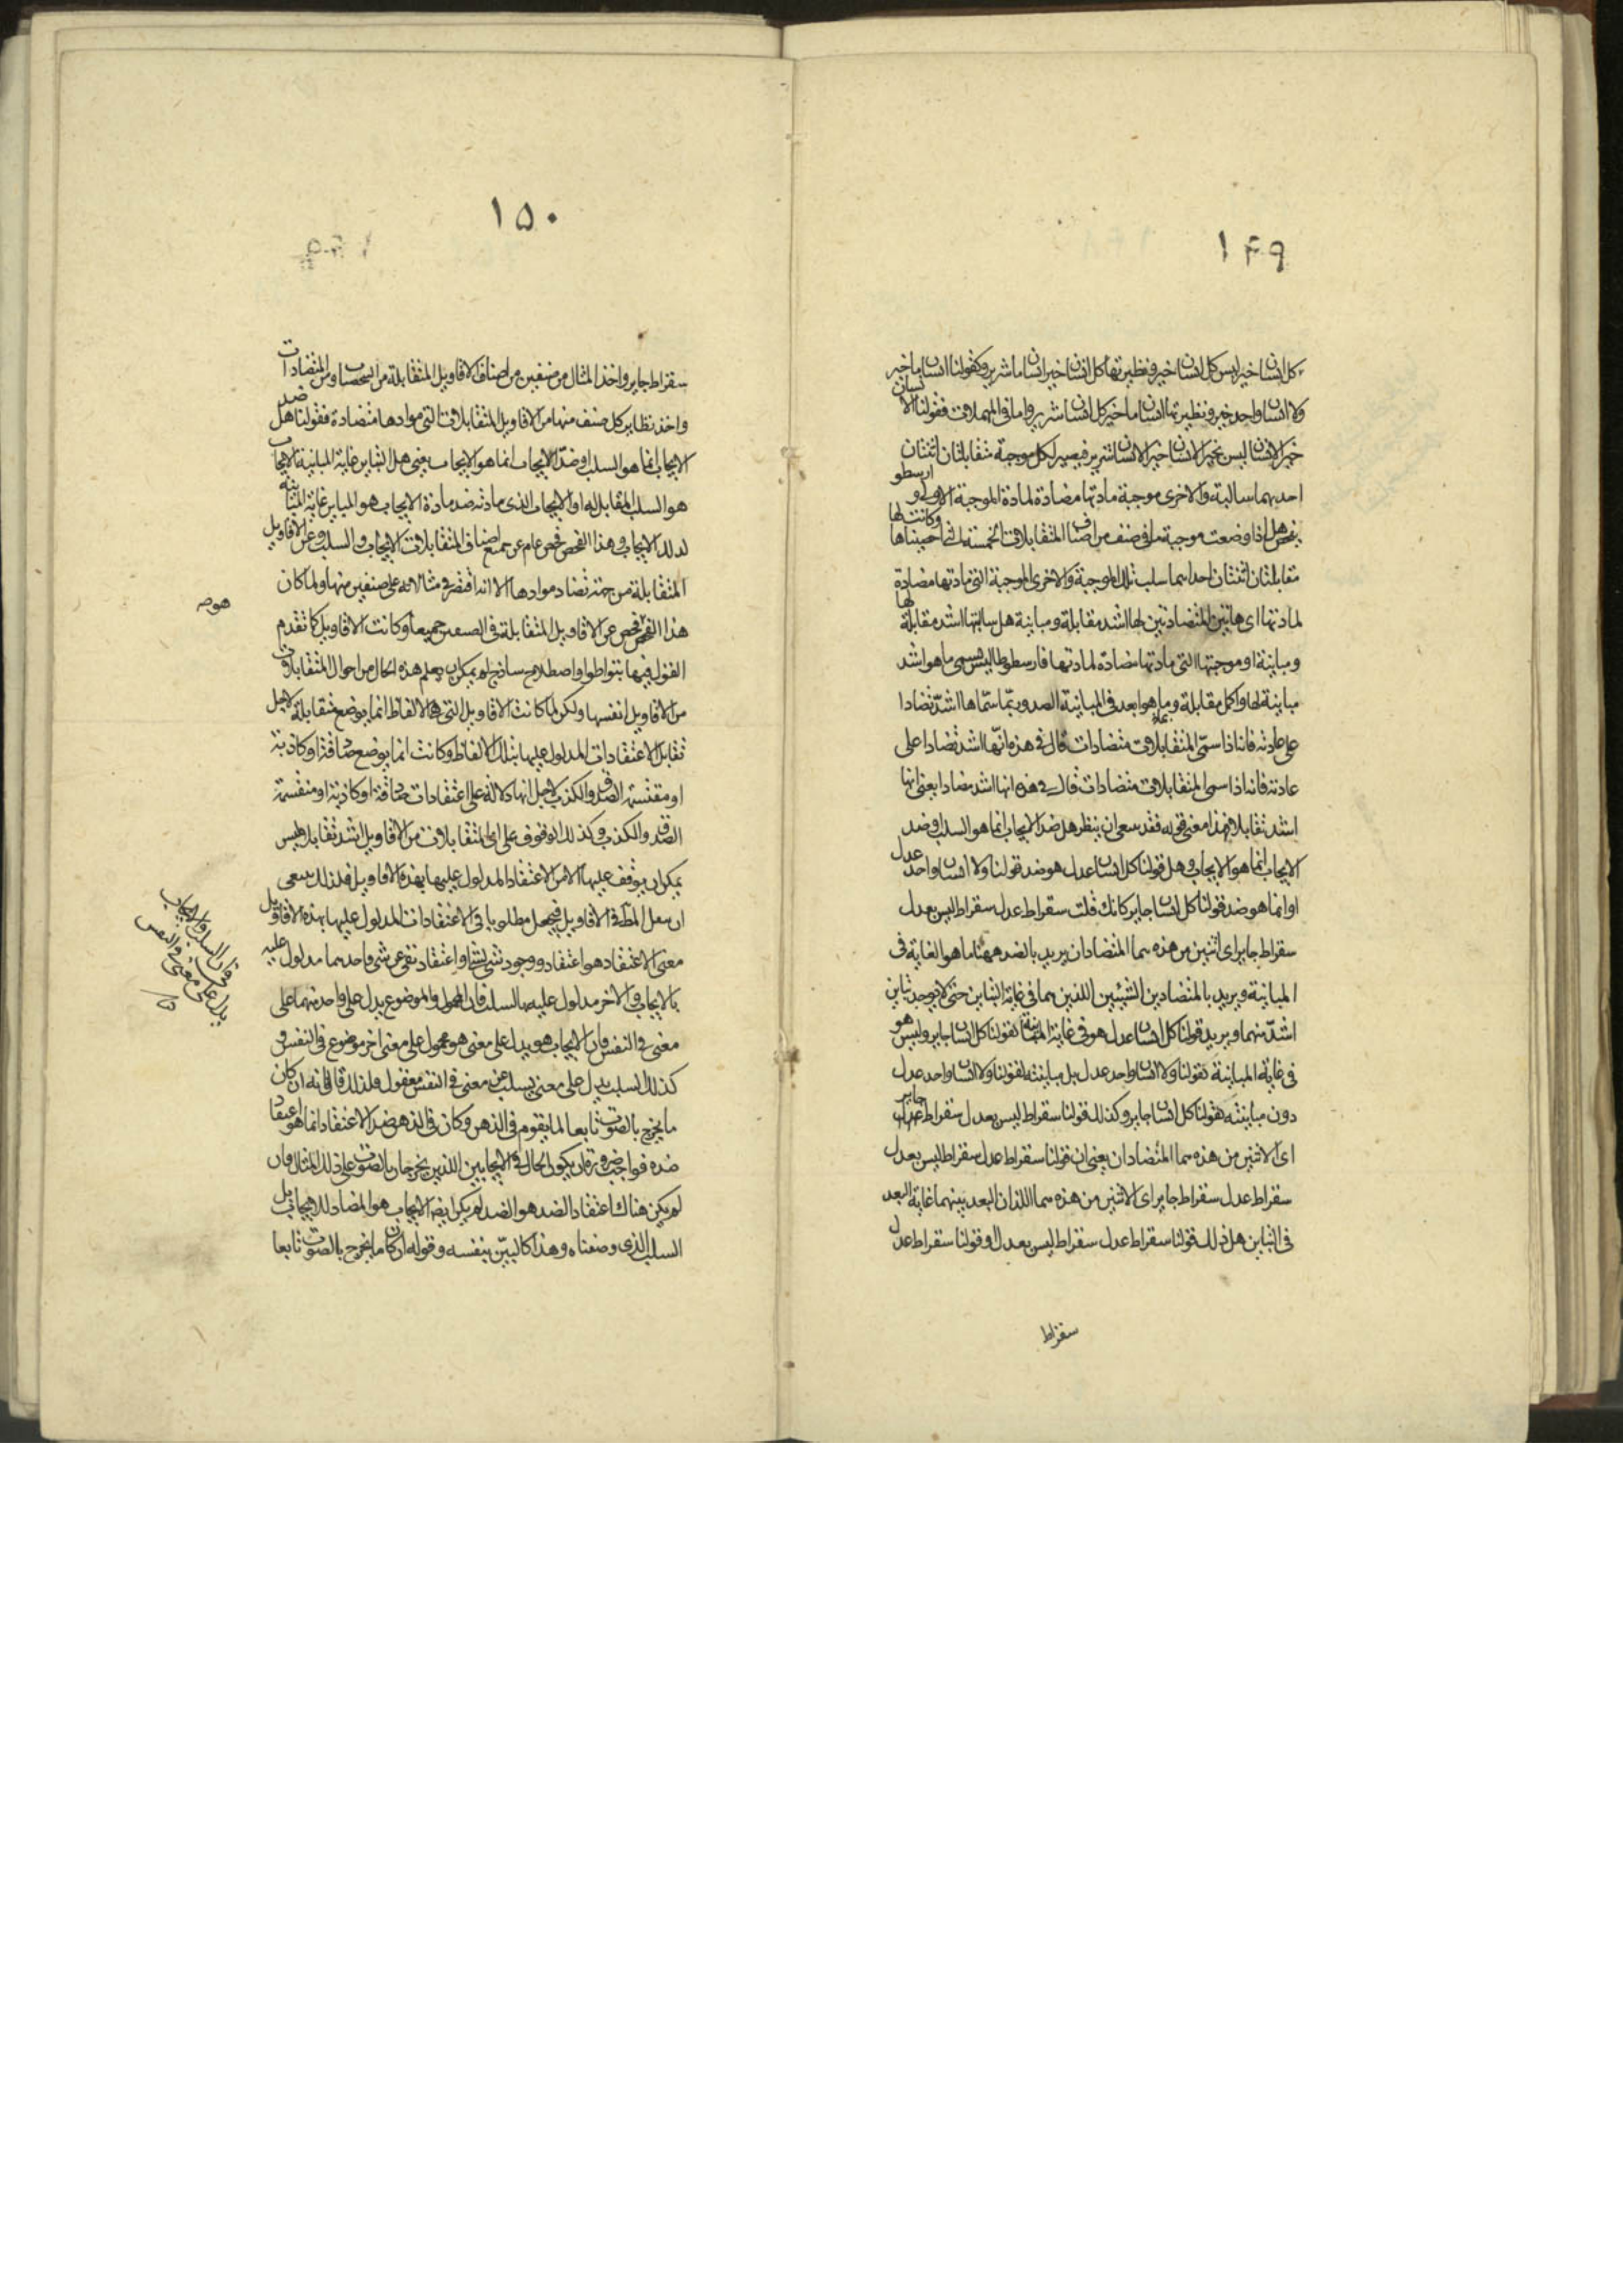 ۱۴۹
كل انسان خير ليس كل انسان خير ونظيرتها كل انسان خير انسان ما شرير وكقولنا انسان ما خير
ولا انسان واحد خير ونظيرتها انسان ما خير كل انسان شرير واما في المهملات فقولنا الانسان
خير الانسان ليس بخير الانسان خير الانسان شرير فيصير لكل موجبة متقابلتان اثنتان
احديهما سالبة والاخرى موجبة مادتها مضادة لمادة الموجبة الاولى وارسطو
يفحص هل اذا وضعت موجبة ما في صنف من اصناف المتقابلات الخمسة التي احصيناها وكانت لها
مقابلتان اثنتان احداهما سلب تلك الموجبة والاخرى الموجبة التي مادتها مضادة
لمادتها اى هاتين المتضادتين لها اشد مقابلة ومباينة هل سالبتها اشد مقابلة لها
ومباينة او موجبتها التي مادتها مضادة لمادتها فارسطوطاليس يسمى ما هو اشد
مباينة لها واكمل مقابلة وما هو ابعد في المباينة الضد وربما سماها اشد تضادا
على عادته فانه اذا سمى المتقابلات متضادات قال في هذه انها اشد تضادا على
عادته فانه اذا سمى المتقابلات متضادات قال في هذه انها اشد تضادا يعنى انها
اشد تقابلا فهذا معنى قوله فقد ينبغى ان ينظر هل ضد الايجاب انما هو السلب او ضد
الايجاب انما هو الايجاب وهل قولنا كل انسان عدل هو ضد قولنا ولا انسان واحد عدل
او انما هو ضد قولنا كل انسان جاير كانك قلت سقراط عدل سقراط ليس بعدل
سقراط جاير اى اثنين من هذه هما المتضادان يريد بالضد ههنا ما هو الغاية في
المباينة ويريد بالمتضادين الشيئين اللذين هما في غاية التباين حتى لا يوجد تباين
اشد منهما ويريد قولنا كل انسان عدل هو في غاية المباينة لقولنا كل انسان جاير وليس هو
في غاية المباينة لقولنا ولا انسان واحد عدل بل مباينته لقولنا ولا انسان واحد عدل
دون مباينته لقولنا كل انسان جاير وكذلك قولنا سقراط ليس بعدل سقراط جاير
اى الاثنين من هذه هما المتضادان يعنى ان قولنا سقراط عدل سقراط ليس بعدل
سقراط عدل سقراط جاير اى الاثنين من هذه هما اللذان البعد بينهما غاية البعد
في التباين هل ذلك قولنا سقراط عدل سقراط ليس بعدل او قولنا سقراط عدل
سقراط
۱۵۰
سقراط جاير واخذ المثال من صنفين من اصناف الاقاويل المتقابلة من الشخصيات ومن المتضادات
واخذ نظاير كل صنف منها من الاقاويل المتقابلات التي موادها متضادة فقولنا هل ضد
الايجاب انما هو السلب او ضد الايجاب انما هو الايجاب يعنى هل التباين غاية المباينة لايجاب
هو السلب المقابل له او الايجاب الذى مادته ضد مادة الايجاب هو المباين غاية المباينة
لذلك الايجاب وهذا الفحص فحص عام عن جميع اصناف المتقابلات الايجاب والسلب وعن الاقاويل
المتقابلة من جهة تضاد موادها الا انه اقتصر في مثالاته على صنفين منها ولما كان
هذا الفحص فحص عن الاقاويل المتقابلة في الصنفين جميعا وكانت الاقاويل كما تقدم
القول فيها بتواطؤ واصطلاح ساذج لم يمكن ان يعلم هذه الحال من احوال المتقابلات
من الاقاويل انفسها ولكن لما كانت الاقاويل التي هي الالفاظ انما يوضع متقابلة لاجل
تقابل الاعتقادات المدلول عليها بتلك الالفاظ وكانت انما يوضع صادقة او كاذبة
او مقتسمة الصدق والكذب لاجل انها دلالة على اعتقادات صادقة او كاذبة او منقسمة
الصدق والكذب وكذلك الوقوف على اى المتقابلات من الاقاويل اشد تقابلا ليس
يمكن ان يوقف عليها الا من الاعتقاد المدلول عليها بهذه الاقاويل فلذلك ينبغى
ان ينقل المطلب في الاقاويل فيجعل مطلوبا في الاعتقادات المدلول عليها بهذه الاقاويل
معنى الاعتقاد هو اعتقاد وجود شى لشى او اعتقاد نفى شى عن شى واحدهما مدلول عليه
بالايجاب والاخر مدلول عليه بالسلب فان المحمول والموضوع يدل على واحد منهما على
معنى في النفس فان الايجاب هو يدل على معنى هو محمول على معنى اخر موضوع في النفس و
كذلك السلب يدل على معنى يسلب عن معنى في النفس معقول ولذلك قال فانه ان كان
ما يخرج بالصوت تابعا لما يقوم في الذهن وكان في الذهن ضد الاعتقاد انما هو اعتقاد
ضده فواجب ضرورة ان يكون الحال في الايجابين اللذين يخرجان بالصوت على ذلك المثال فان
لم يكن هناك اعتقاد الضد هو الضد لم يكن ايضا الايجاب هو المضاد للايجاب بل
السلب الذى وضعناه وهذا كالبين بنفسه وقوله ان كان ما يخرج بالصوت تابعا
السلب والايجاب
يدل على معنى في النفس